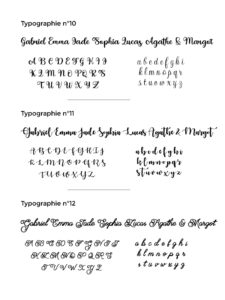 Typographie n°10
Gabriel Emma Jade Sophia Lucas Agathe & Margot
A B C D E F G H I J
K L M N O P Q R S
T U V W X Y Z
a b c d e f g h i j
k l m n o p q r
s t u v w x y z
Typographie n°11
Gabriel Emma Jade Sophia Lucas Agathe & Margot
A B C D E F G H I J
K L M N O P Q R S
T U V W X Y Z
a b c d e f g h i j
k l m n o p q r
s t u v w x y z
Typographie n°12
Gabriel Emma Jade Sophia Lucas Agathe & Margot
A B C D E F G H I J
K L M N O P Q R S
T U V W X Y Z
a b c d e f g h i j
k l m n o p q r
s t u v w x y z